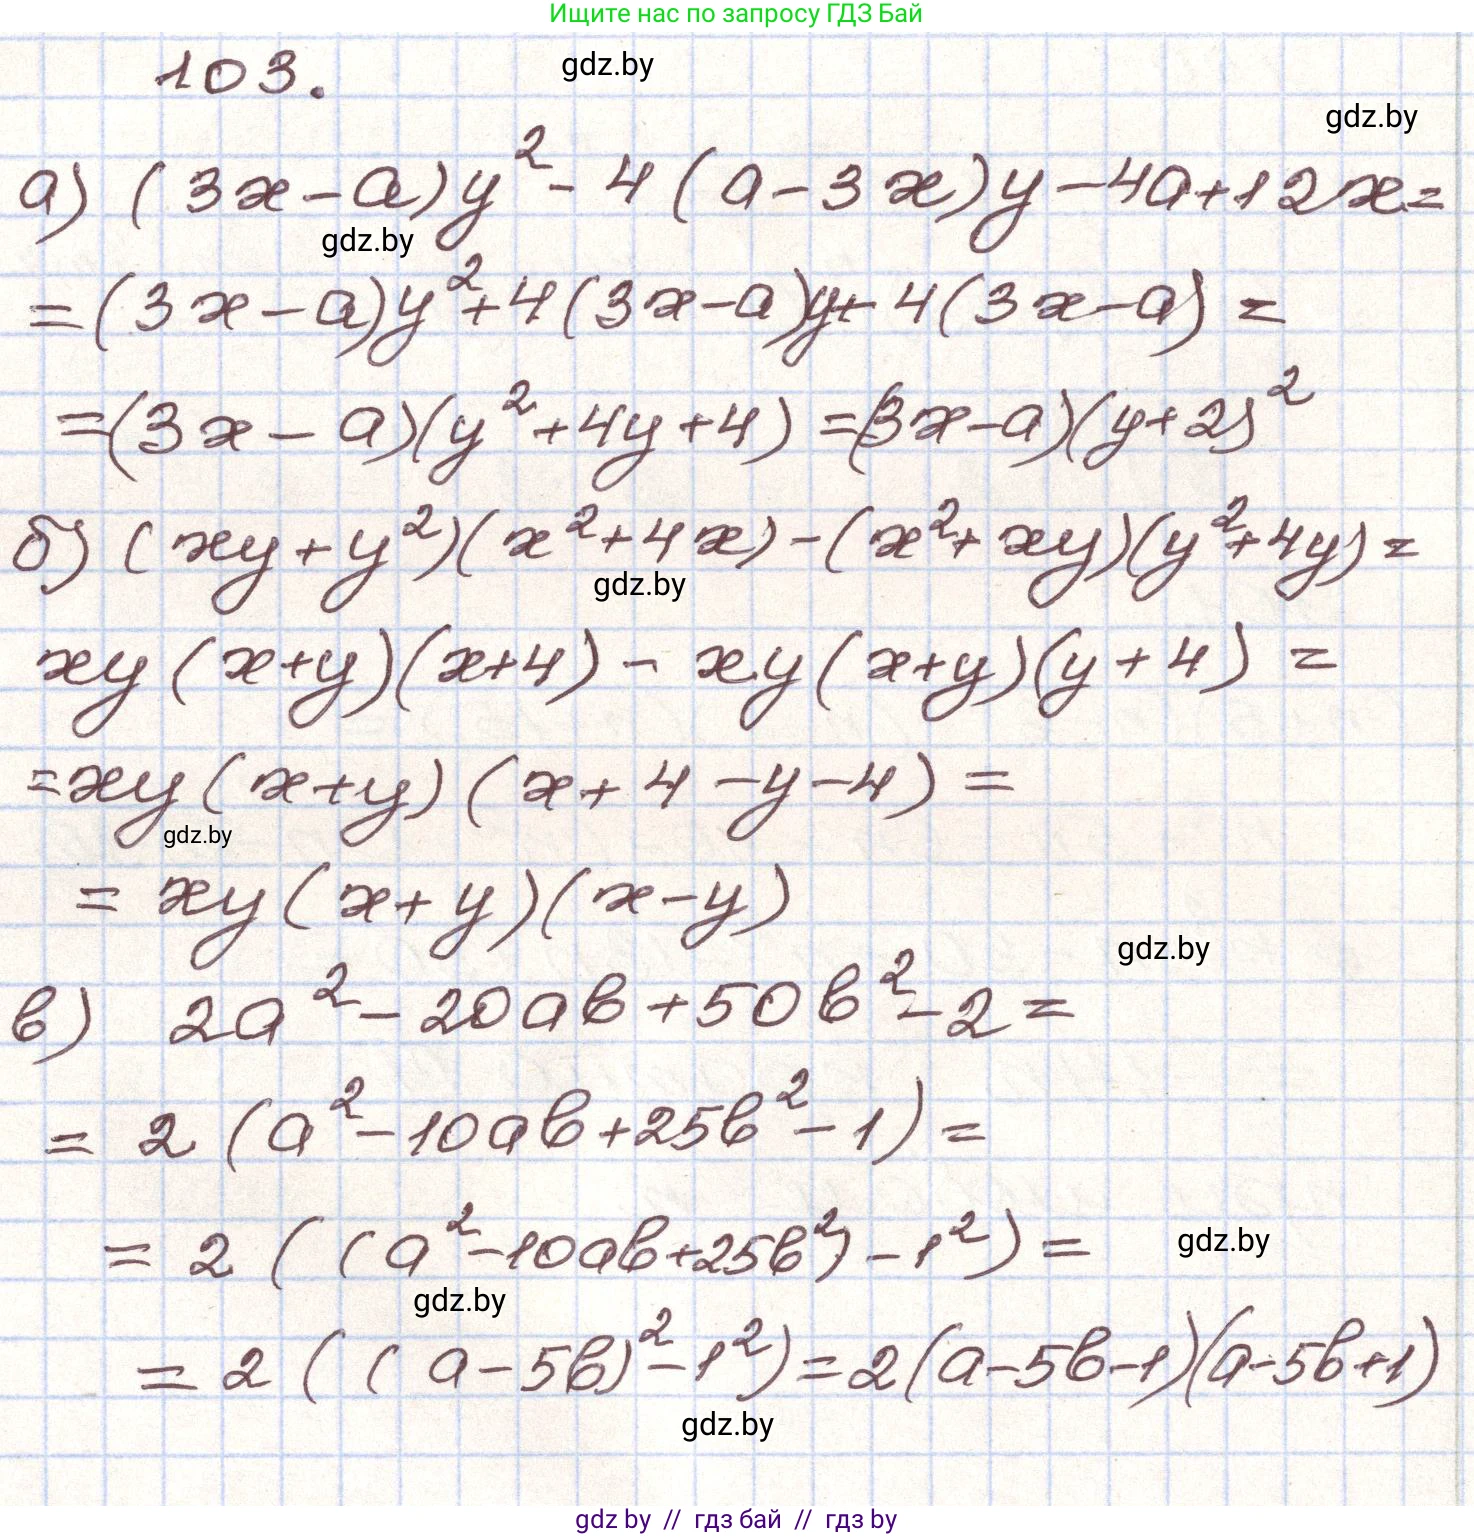 Ищите нас по запросу ГДЗ Бай
103.
gdz.by
gdz.by
а) (3x-a)y²-4(a-3x)y-4a+12x=
gdz.by
=(3x-a)y²+4(3x-a)y+4(3x-a)=
=(3x-a)(y²+4y+4)=(3x-a)(y+2)²
б) (xy+y²)(x²+4x)-(x²+xy)(y²+4y)=
gdz.by
xy(x+y)(x+4)-xy(x+y)(y+4)=
=xy(x+y)(x+4-y-4)=
gdz.by
=xy(x+y)(x-y)
gdz.by
в) 2a²-20ab+50b²-2=
=2(a²-10ab+25b²-1)=
=2((a²-10ab+25b²)-1²)=
gdz.by
gdz.by
=2((a-5b)²-1²)=2(a-5b-1)(a-5b+1)
gdz.by
gdz by // гдз бай // гдз by